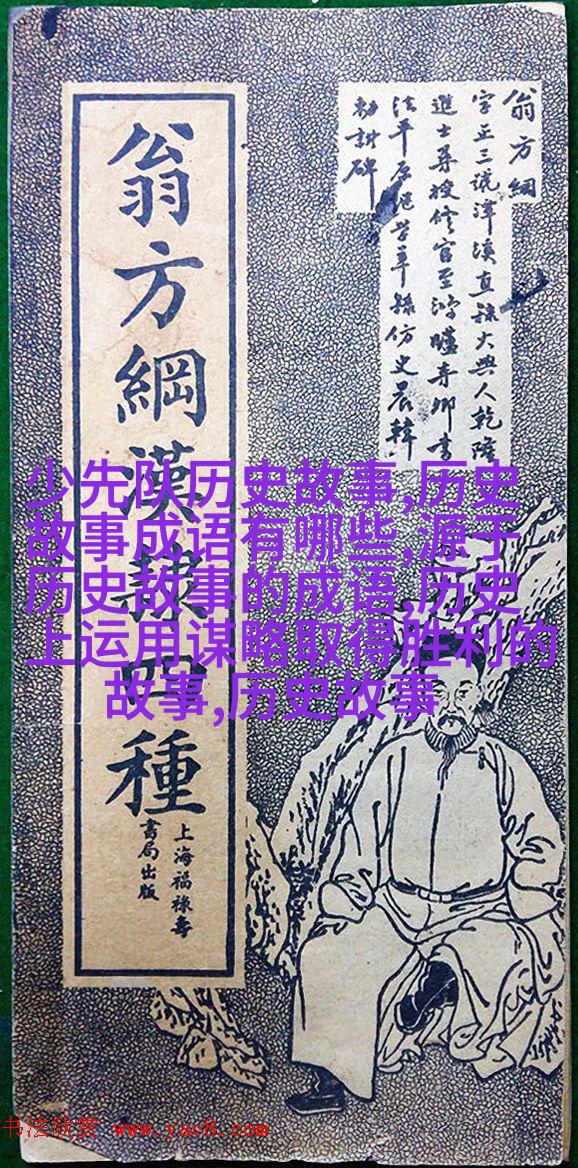 翁方綱
字正三號潭溪直隸大興人乾隆
進士尋授修官至鴻臚寺卿書
法平原繼學率更隸仿史晨韓
勅封碑
翁方綱漢隸四種
上海福祿壽
書局出版
少先队历史故事,历史
故事成语有哪些,源于
历史故事的成语,历史
上运用谋略取得胜利的
故事,历史故事
书法欣赏 www.yac8.com